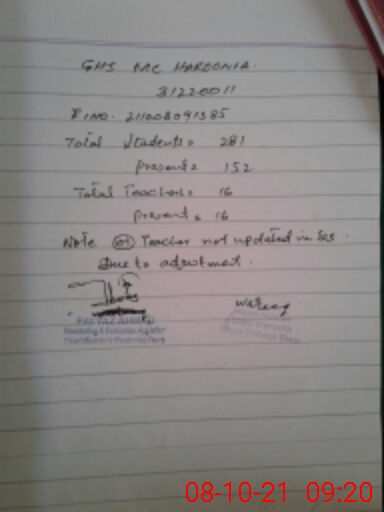 GHS PAC HAROONIA.
31220011
EINO. 211008091385
Total Students = 281
present = 152
Total Teachers = 16
present = 16
Note 01 Teacher not updated in SIS.
Due to adjustment.
Monitoring & Evaluation Assistant
08-10-21 09:20